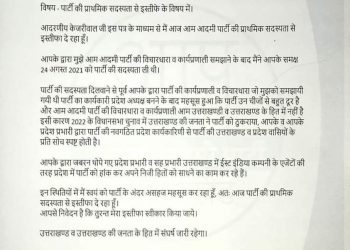 विषय - पार्टी की प्राथमिक सदस्यता से इस्तीफे के विषय में।
आदरणीय केजरीवाल जी इस पत्र के माध्यम से मैं आज आम आदमी पार्टी की प्राथमिक सदस्यता से
इस्तीफा दे रहा हूँ।
आपके द्वारा मुझे आम आदमी पार्टी की विचारधारा व कार्यप्रणाली समझाने के बाद मैंने आपके समक्ष
24 अगस्त 2021 को पार्टी की सदस्यता ली थीं।
पार्टी की सदस्यता दिलवाने से पूर्व आपके द्वारा पार्टी की कार्यप्रणाली व विचारधारा जो मुझको समझायी
गयी थी पार्टी का कार्यकारी प्रदेश अध्यक्ष बनने के बाद महसूस हुआ कि पार्टी उन चीजों से बहुत दूर है
और आम आदमी पार्टी की विचारधारा व कार्यप्रणाली आम उत्तराखण्डी व उत्तराखण्ड के हित में नहीं है
इसी कारण 2022 के विधानसभा चुनाव में उत्तराखण्ड की जनता ने पार्टी को ठुकराया, आपके व आपके
प्रदेश प्रभारी द्वारा पार्टी की नवगठित प्रदेश कार्यकारिणी से पार्टी की उत्तराखण्ड व प्रदेश वासियों के
प्रति सोच स्पष्ट होती है।
आपके द्वारा जबरन थोपे गए प्रदेश प्रभारी व सह प्रभारी उत्तराखण्ड में ईस्ट इंडिया कम्पनी के एजेंटों की
तरह प्रदेश में पार्टी को हांक कर अपने निजी हितों को साधने का काम कर रहे हैं।
इन स्थितियों में मैं स्वयं को पार्टी के अंदर असहज महसूस कर रहा हूँ, अतः आज पार्टी की प्राथमिक
सदस्यता से इस्तीफा दे रहा हूँ।
आपसे निवेदन है कि तुरन्त मेरा इस्तीफा स्वीकार किया जाये।
उत्तराखण्ड व उत्तराखण्ड की जनता के हित में संघर्ष जारी रहेगा।